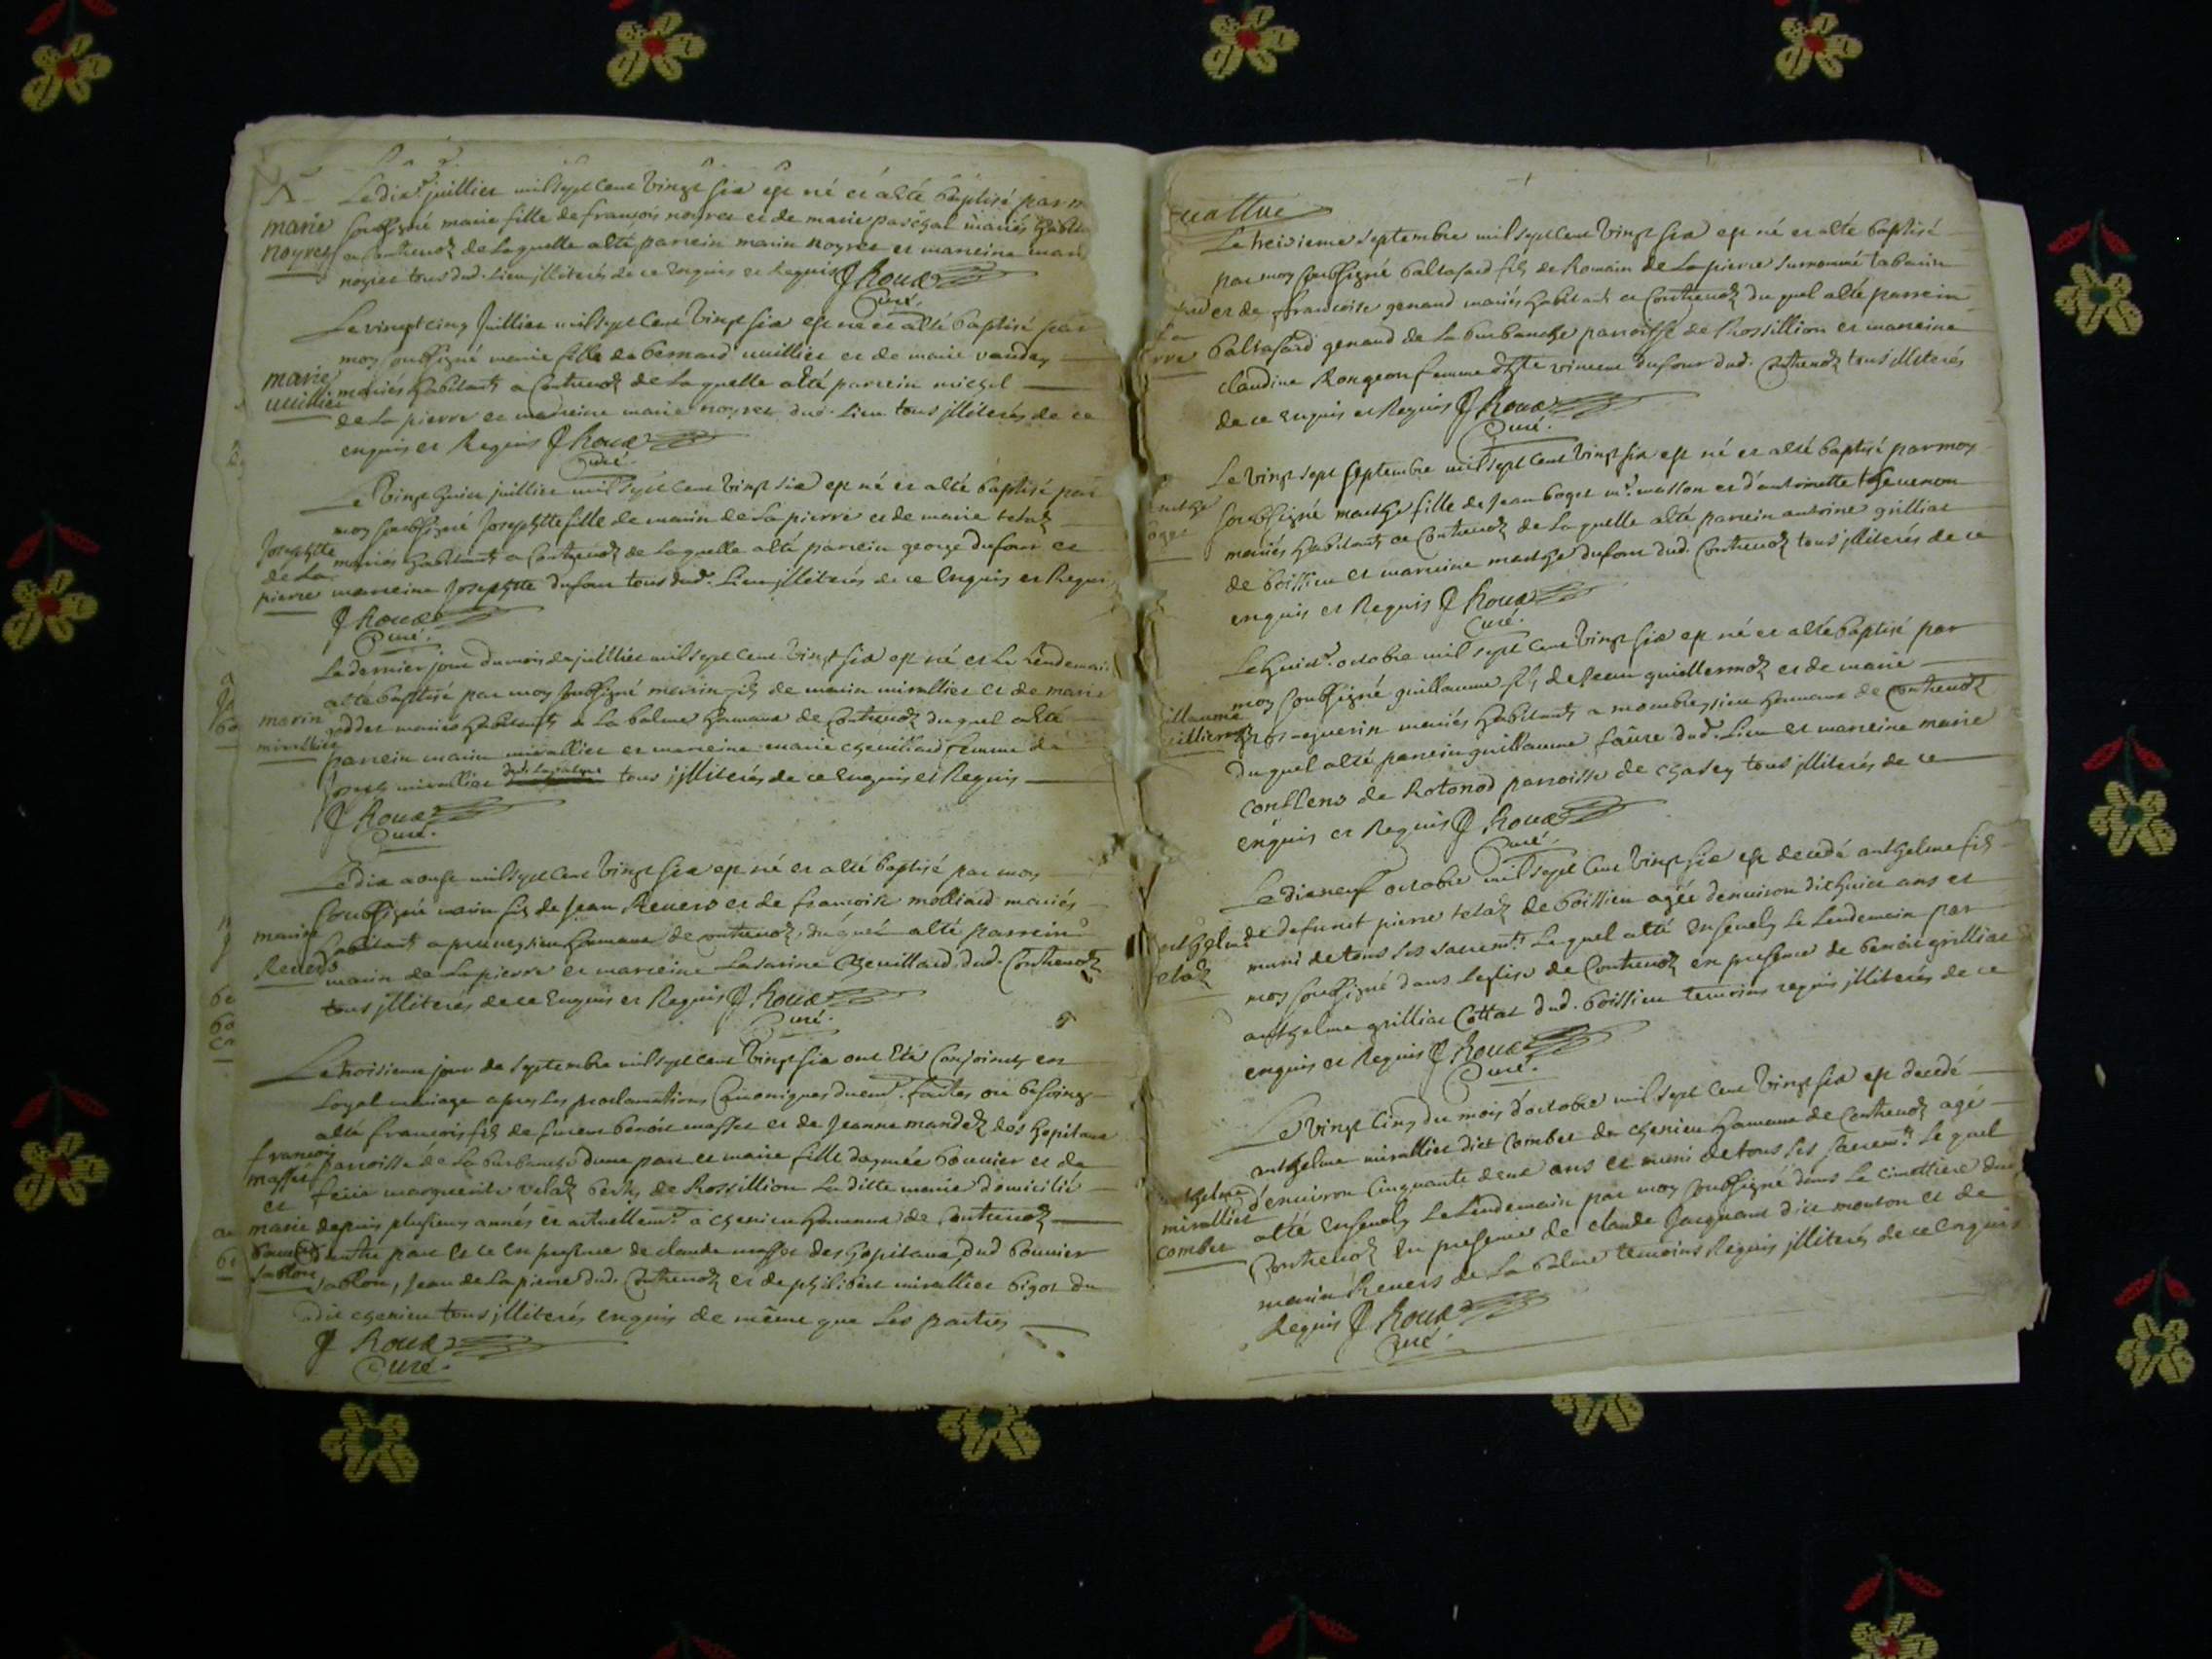 Le dix.e juillier mil sept cent vingt six est né et a été baptisé par m
marie soussigné marie fille de françois noyrer et de marie mariés habit
noyrer a Contrevoz de laquelle a été parrein marin noyrer et marreine mari
noyrer tous dud. lieu jlliterés de ce enquis et Requis J Roux
Curé.
Le vingt cinq Juillier mil sept cent vingt six est né et a été baptisé par
moy soussigné marie fille de bernard uuillier et de marie
marie mariés habitants a Contrevoz de laquelle a été parrein michel
uuillier de la pierre et marreine marie noyrer dud. lieu tous jlliterés de ce
enquis et Requis J Roux
Curé.
Le vingt huict juillier mil sept cent vingt six est né et a été baptisé par
moy soussigné Josephtte fille de marin de la pierre et de marie
Josephtte mariés habitants a Contrevoz de laquelle a été parrein george dufour et
de la
pierre marreine Josephtte dufour tous dud. lieu jlliterés de ce enquis et Requis
J Roux
Curé.
Le dernier jour du mois de juillier mil sept cent vingt six est né et le lendemai
a été baptisé par moy soussigné marin fils de marin mirallier et de marie
marin goddet mariés habitants a la balme hameau de Contrevoz duquel a été
mirallier parrein marin mirallier et marreine marie chevillard femme de
mirallier tous jlliterés de ce enquis et Requis
J Roux
Curé.
Le dix aoust mil sept cent vingt six est né et a été baptisé par moy
soussigné marin fils de Jean Revers et de francoise molliard mariés
marin habitants a hameau de contrevoz, duquel a été parrein
Revers marin de la pierre et marreine chevillard dud. Contrevoz
tous jlliterés de ce enquis et Requis J Roux
Curé.
Le troisieme jour de septembre mil sept cent vingt six ont été conjoincts en
loyal mariage apres les proclamations Canoniques duem.t faites ou besoing
a été francois fils de benoit masset et de Jeanne des hopitaux
francois parroisse de la burbanche d'une part et marie fille bouvier et de
masset
et marguerite de Rossillion la ditte marie domicilié
marie depuis plusieurs annés et actuellem.t a chenieu hameau de Contrevoz
bouvier d'autre part et ce en presence de claude masset des hopitaux, dud bouvier
sablon sablon, Jean de la pierre dud. Contrevoz et de philibert mirallier bigot du
dit chenieu tous jlliterés enquis de même que les parties
J Roux
Curé.
quattre
Le treisieme septembre mil sept cent vingt six est né et a été baptisé
par moy soussigné baltasard fils de Romain de la pierre surnommé tabarin
et de francoise genaud mariés habitants a Contrevoz du quel a été parrein
baltasard genaud de la burbanche parroisse de Rossillion et marreine
claudine Rongeon femme vincent dufour dud. Contrevoz tous jlliterés
de ce enquis et Requis J Roux
Curé.
Le vingt sept septembre mil sept cent vingt six est né et a été baptisé par moy
soussigné marthe fille de Jean boget m.e masson et d'antoinette thevenon
mariés habitants a Contrevoz de laquelle a été parrein antoine grilliat
de boissieu et marreine marthe dufour dud. Contrevoz tous jlliterés de ce
enquis et Requis J Roux
Curé.
Le huict.e octobre mil sept cent vingt six est né et a été baptisé par
moy soussigné guillaume fils de Jean guillermoz et de marie
mariés habitants a hameau de Contrevoz
du quel a été parrein guillaume faure dud. lieu et marreine marie
de Rotonod parroisse de chasey tous jlliterés de ce
enquis et Requis J Roux
Curé.
Le dix neuf octobre mil sept cent vingt six est decedé anthelme fils
de defunct pierre telaz de boissieu agée denviron dix huict ans et
muni de tous ses sacrem.ts lequel a été ensevely le lendemain par
elaz moy soussigné dans leglise de Contrevoz en presence de benoit grilliat
anthelme grilliat Cottat dud. boissieu temoins requis jlliterés de ce
enquis et Requis J Roux
Curé.
Le vingt cinq du mois d'octobre mil sept cent vingt six est decedé
anthelme mirallier dict combet de chenieu hameau de Contrevoz agé
d'environ cinquante deux ans et muni de tous ses sacrem.ts le quel
mirallier a été ensevely le lendemain par moy soussigné dans le cimettiere dud
combet Contrevoz en presence de claude Jacquand dict mouton et de
marin Revers de la balme temoins Requis jlliterés de ce enquis
Requis J Roux
Curé.